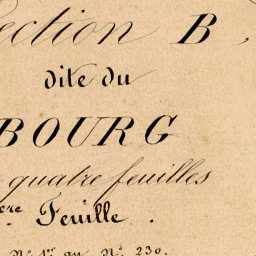 ection B,
dite du
BOURG
quatre feuilles
ère Feuille.
Nº 1er au Nº 230.